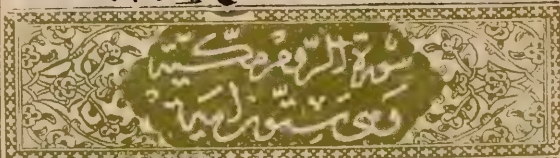 سورة الروم مكية
وهي ستون اية